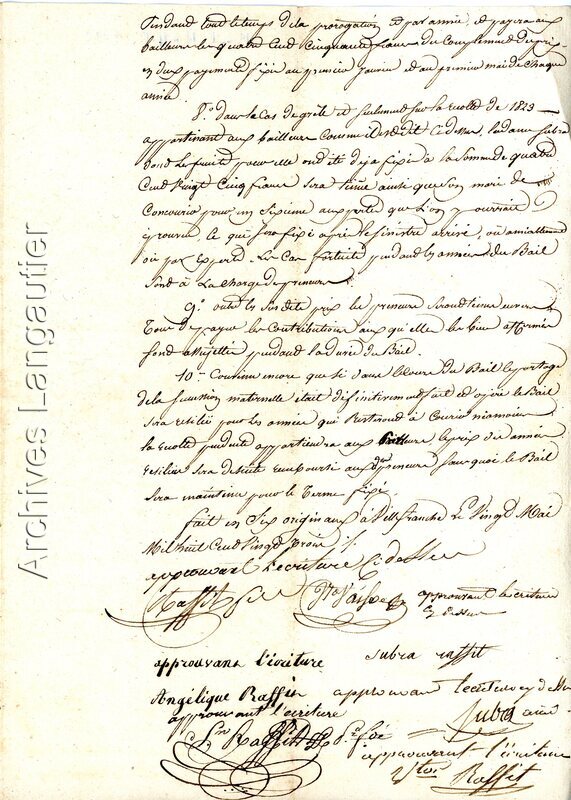 Pendant tout le temps de la prorogation et par année, et payera aux
bailleurs les quatre cent cinquante francs de complement du prix
en deux payements fixés au premier janvier et au premier mai de chaque
année
8.° dans le cas de grêle et seulement sur la recolte de 1823
appartenant aux bailleurs comme il est dit ci dessus, la dame Subra
dont le fruit pour elle ont été deja fixé à la somme de quatre
cent vingt cinq francs sera tenue ainsi que son mari de
concourir pour un sixieme aux pertes que l'on pourrait
éprouver ce qui sera fixé après le sinistre arrivé, ou amiablement
ou par experts. Les cas fortuits pendant les années du Bail
sont à la charge des preneurs
9.° outre les susdits prix les preneurs seront tenus envers
de payer les contributions auxquelles les biens affermés
sont assujettis pendant la durée du Bail.
10.° Convenu encore que si dans le cours du Bail le partage
de la succession maternelle était définitivement fait et opéré le Bail
sera resilié pour les années qui resteront à courir néanmoins
la recolte pendante appartiendra aux preneurs le prix des années
resiliées sera de suite remboursé aux preneurs sans quoi le Bail
sera maintenu pour le terme fixé.
fait en six originaux à Villefranche le vingt Mai
Mil huit cent vingt trois
approuvant l'ecriture ci dessus
Raffit
approuvant l'ecriture
ci dessus
approuvant l'écriture subra raffit
Angélique Raffit approuvant l'ecriture ci dessus
approuvant l'ecriture Subra ainé
Raffit
approuvant l'écriture
Raffit
Archives Langautier